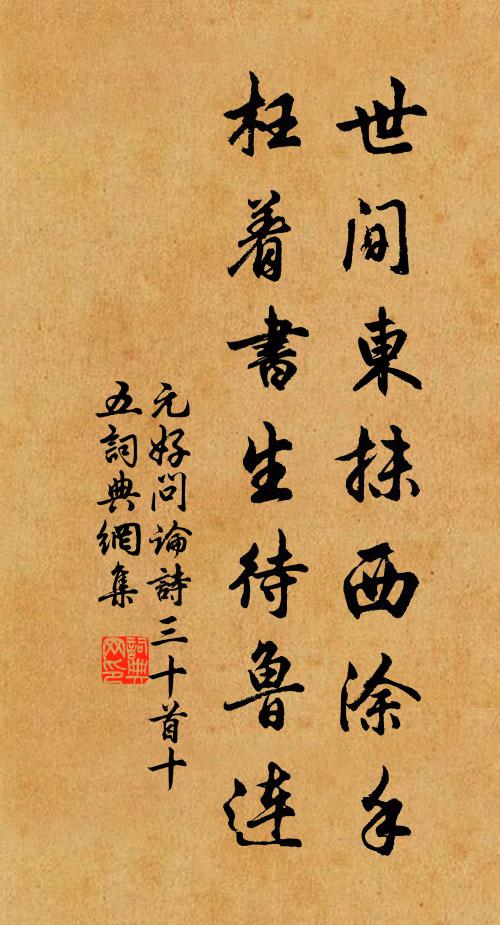 世間東抹西涂手
枉着書生待魯連
元好問論詩三十首十
五詞典網集
詞典网印